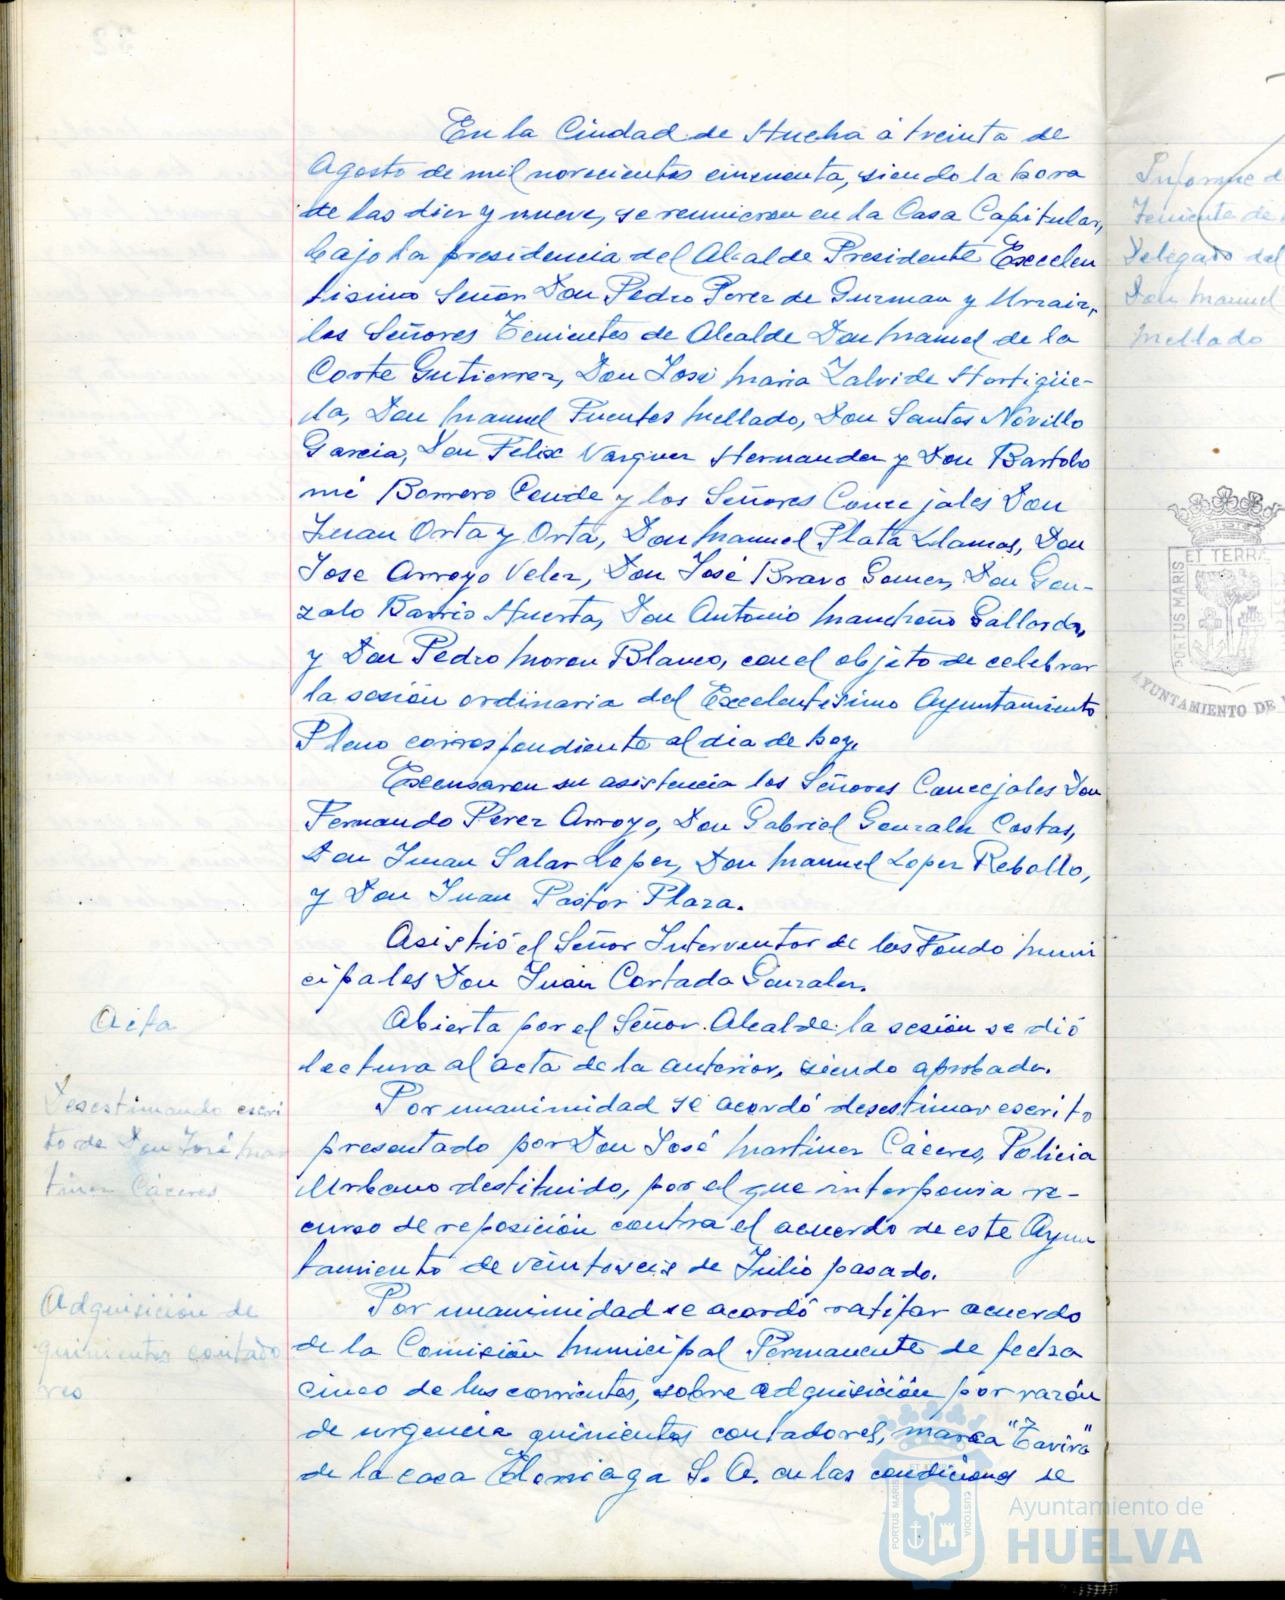 En la Ciudad de Huelva á treinta de
Agosto de mil novecientos cincuenta, siendo la hora
de las diez y nueve, se reunieron en la Casa Capitular,
bajo la presidencia del Alcalde Presidente Excelen
tisimo Señor Don Pedro Perez de Guzman y Urzaiz,
los Señores Tenientes de Alcalde Don Manuel de la
Corte Gutierrez, Don José Maria Zalvide Hortigüe-
la, Don Manuel Fuentes Mellado, Don Santos Novillo
Garcia, Don Felix Vazquez Hernandez y Don Bartolo
mé Borrero Conde y los Señores Concejales Don
Juan Orta y Orta, Don Manuel Plata Llamas, Don
Jose Arroyo Velez, Don José Bravo Gomez, Don Gon-
zalo Barrio Huerta, Don Antonio Mandreño Gallardo,
y Don Pedro Moron Blanco, con el objeto de celebrar
la sesión ordinaria del Excelentisimo Ayuntamiento
Pleno correspondiente al dia de hoy.
Excusaron su asistencia los Señores Concejales Don
Fernando Perez Arroyo, Don Gabriel Gonzalez Costas,
Don Juan Salas Lopez, Don Manuel Lopez Rebollo,
y Don Juan Pastor Plaza.
Asistió el Señor Interventor de los Fondo Muni
cipales Don Juan Cortada Gonzalez.
Acta
Abierta por el Señor Alcalde la sesión se dió
lectura al acta de la anterior, siendo aprobada.
Desestimando escri
to de Don José Mar
tinez Cáceres
Por unanimidad se acordó desestimar escrito
presentado por Don José Martinez Cáceres, Policia
Urbano destituido, por el que interponia re-
curso de reposición contra el acuerdo de este Ayun
tamiento de veintiseis de Julio pasado.
Adquisición de
quinientos contado
res
Por unanimidad se acordó ratifar acuerdo
de la Comisión Municipal Permanente de fecha
cinco de los corrientes, sobre adquisición por razón
de urgencia quinientos contadores, marca "Tavira"
de la casa Elorriaga S. A. en las condiciones se
Informe d
Teniente de
Delegado del
Don Manuel
Mellado
ET TERRÆ
PORTUS MARIS
AYUNTAMIENTO DE
PORTUS MARIS
CUSTODIA
Ayuntamiento de
HUELVA